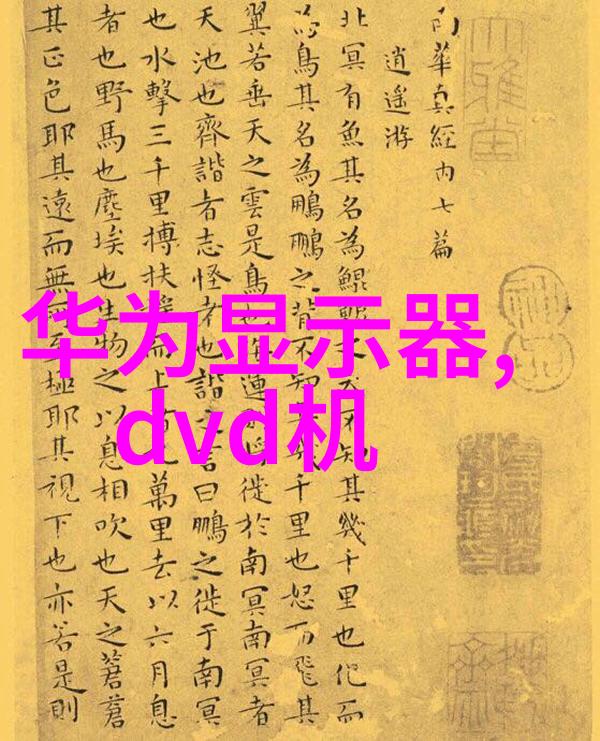 南華真經內七篇
逍遙游
北冥有魚其名為鯤鯤之大不知其幾千里也化而
為鳥其名為鵬鵬之背不知其幾千里也怒而飛其
翼若垂天之雲是鳥也海運則將徙於南冥南冥者
天池也齊諧者志怪者也諧之言曰鵬之徙于南冥
也水擊三千里搏扶搖而上者九萬里去以六月息
者也野馬也塵埃也生物之以息相吹也天之蒼蒼
其正色耶其遠而無所至極耶其視下也亦若是則
华为显示器,
dvd机
大雅堂
神品